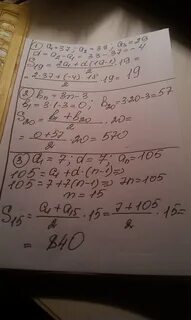 1) a₁ = 37; a₂ = 33; a₃ = 29
d = a₂ - a₁ = 33 - 37 = -4
S₁₉ = (2a₁ + d(19-1))/2 · 19 =
= (2·37 + (-4)·18)/2 · 19 = 19
2) bₙ = 3n - 3
b₁ = 3·1 - 3 = 0; b₂₀ = 3·20 - 3 = 57
S₂₀ = (b₁ + b₂₀)/2 · 20 =
= (0 + 57)/2 · 20 = 570
3) a₁ = 7; d = 7; aₙ = 105
105 = a₁ + d·(n-1) ⇒
105 = 7 + 7(n-1) ⇒ 7n = 105
n = 15
S₁₅ = (a₁ + a₁₅)/2 · 15 = (7 + 105)/2 · 15 =
= 840